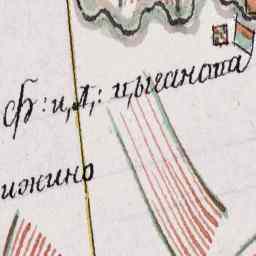 Ф: и, Д,: цыганова
ижино